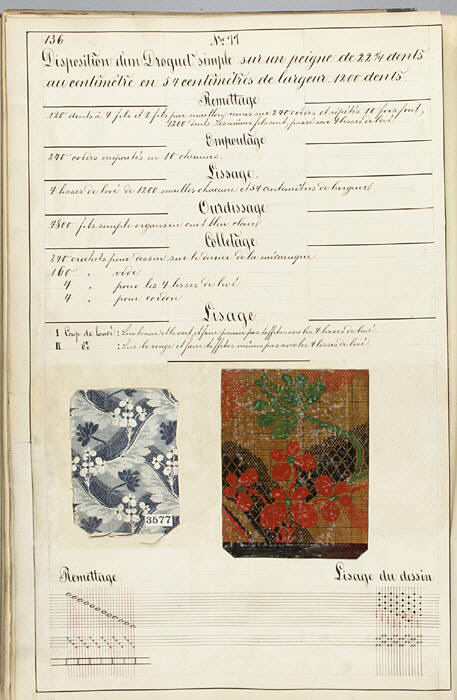 136
No 77
Disposition d'un Droguet simple sur un peigne de 22 2/4 dents
au centimètre en 54 centimètres de largeur. 1200 dents
Remettage
120 dents à 4 fils et 2 fils par maillon, remis sur 240 cordes et répétés 10 fois font,
1200 dents. Les mêmes fils sont passé sur 4 lisses de levé.
Empoutage
240 cordes empoutés en 10 chemins.
Lissage.
4 lisses de levé de 1200 mailles chacune et 54 centimètres de largeur
Ourdissage
4800 fils simple organsin cuit bleu clair
Colletage
240 crochets pour dessin sur le derrière de la mécanique
160 " vide
4 " pour les 4 lisses de levé
4 " pour cordon
Lisage
I Coup de lancé : Lire blanc et le vert, et faire taffetas avec les 4 lisses de levé.
II do : Lire le rouge et faire taffetas même pas avec les 4 lisses de levé.
3577
Remettage
Lisage du dessin